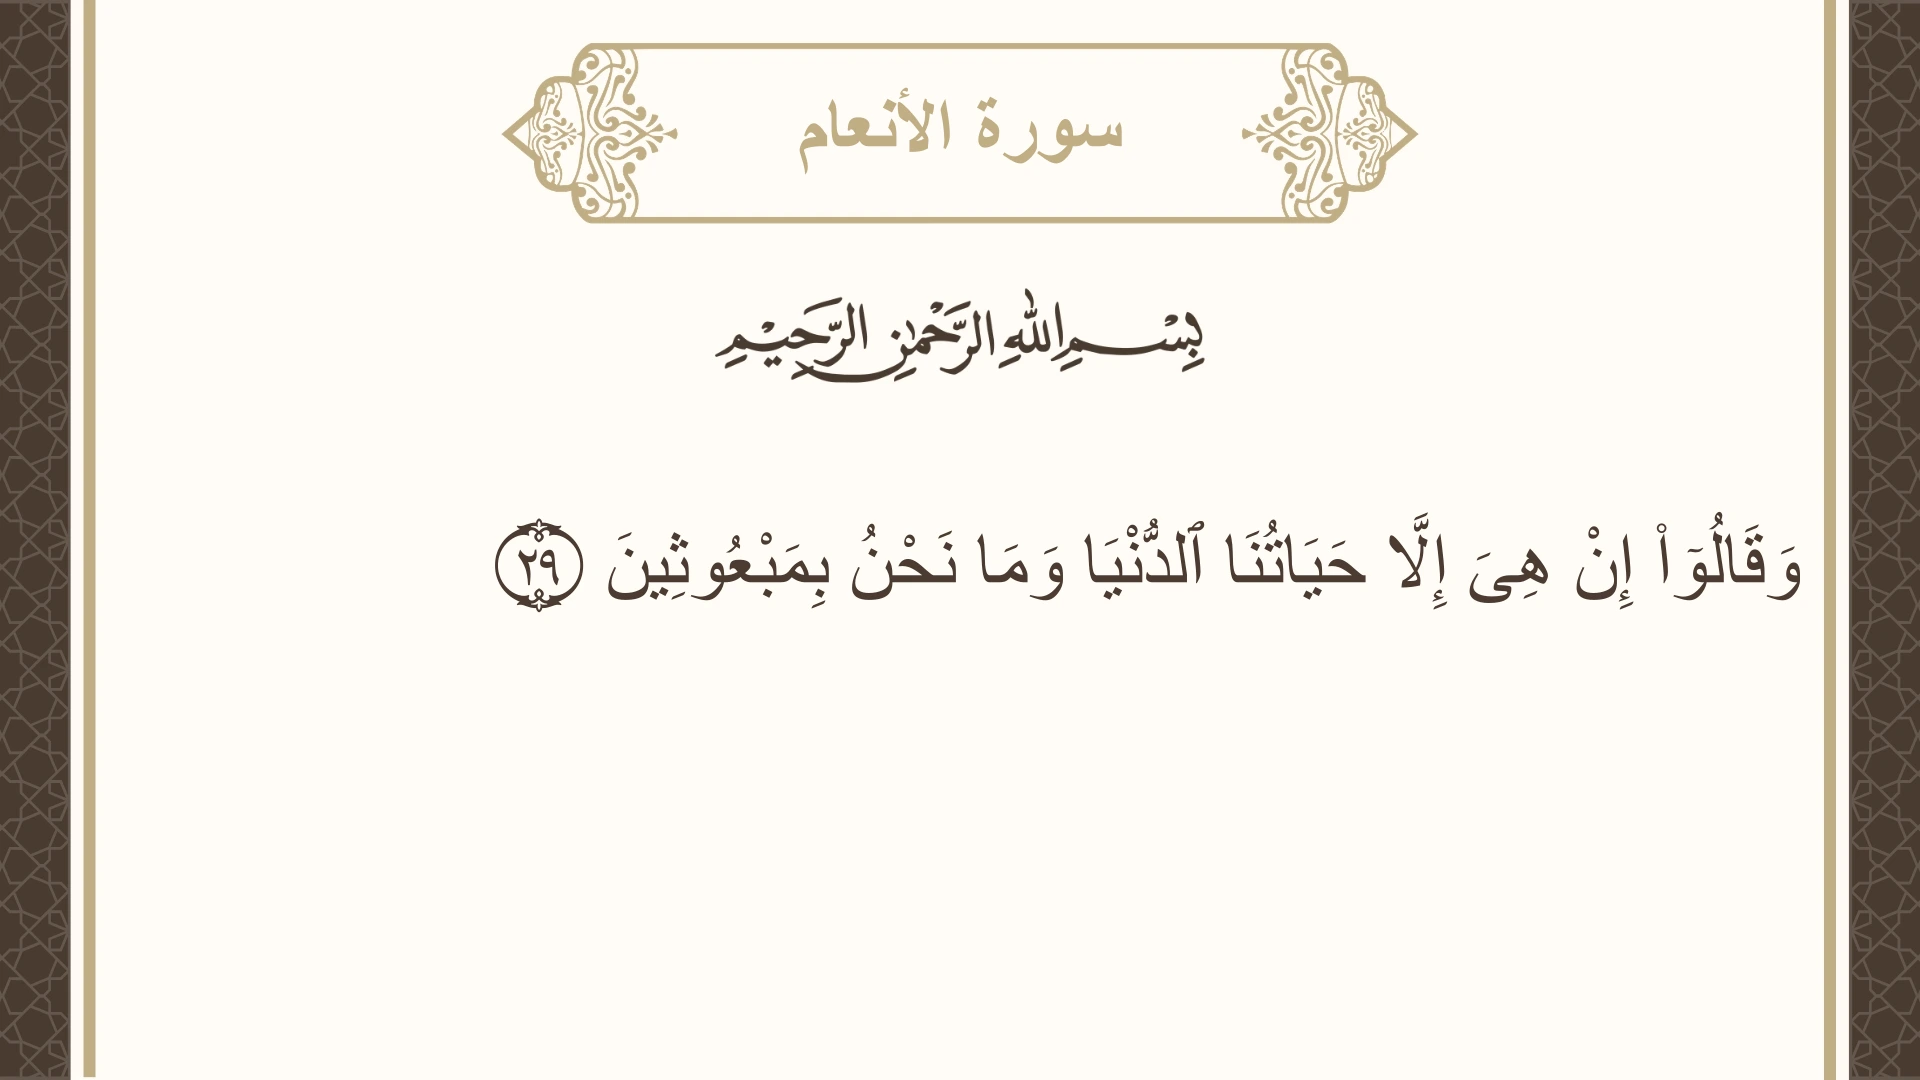 سورة الأنعام
بِسْمِ اللهِ الرَّحْمٰنِ الرَّحِيْمِ
وَقَالُوٓا۟ إِنْ هِىَ إِلَّا حَيَاتُنَا ٱلدُّنْيَا وَمَا نَحْنُ بِمَبْعُوثِينَ ٢٩